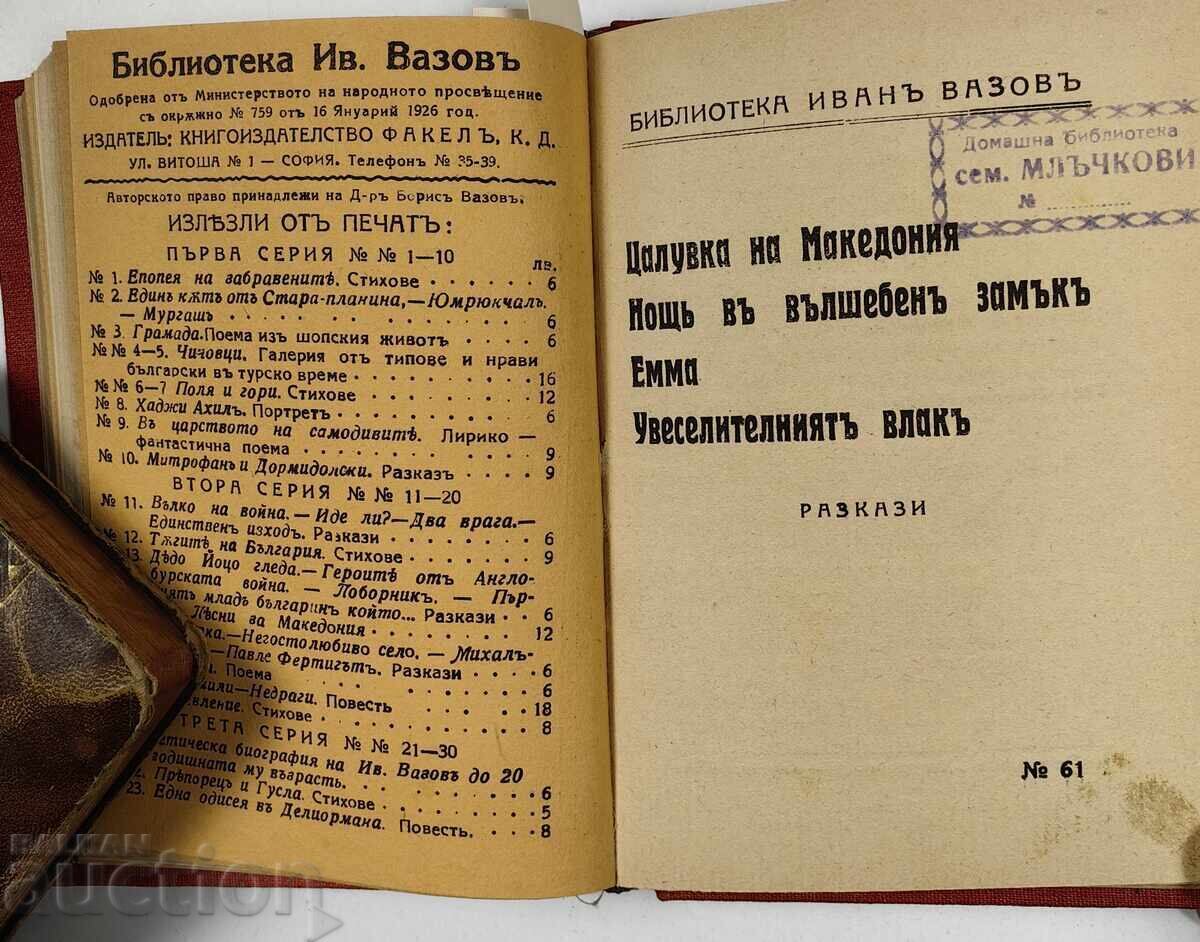 Библиотека Ив. Вазовъ
Одобрена отъ Министерството на народното просвѣщение
съ окрѫжно № 759 отъ 16 Януарий 1926 год.
ИЗДАТЕЛЬ: КНИГОИЗДАТЕЛСТВО ФАКЕЛЪ, К. Д.
УЛ. ВИТОША № 1 — СОФИЯ. Телефонъ № 35-39.
Авторското право принадлежи на Д-ръ Борисъ Вазовъ.
ИЗЛѢЗЛИ ОТЪ ПЕЧАТЪ:
ПЪРВА СЕРИЯ № № 1—10 лв.
№ 1. Епопея на забравенитѣ. Стихове 6
№ 2. Единъ кѫтъ отъ Стара-планина,—Юмрюкчалъ.
— Мургашъ 6
№ 3. Грамада. Поема изъ шопския животъ 6
№№ 4—5. Чичовци. Галерия отъ типове и нрави
български въ турско време 16
№№ 6—7 Поля и гори. Стихове 12
№ 8. Хаджи Ахилъ. Портретъ 6
№ 9. Въ царството на самодивитѣ. Лирико —
фантастична поема 9
№ 10. Митрофанъ и Дормидолски. Разказъ 9
ВТОРА СЕРИЯ № № 11—20
№ 11. Вълко на война.—Иде ли?—Два врага.—
Единственъ изходъ. Разкази 6
№ 12. Тѫгитѣ на България. Стихове 9
13. Дѣдо Йоцо гледа.—Героитѣ отъ Англо-
бурската война. — Поборникъ. — Пър-
ятъ младъ българинъ който... Разкази 6
Пѣсни за Македония 12
ка.—Негостолюбиво село. — Михалъ-
—Павле Фертигътъ. Разкази 6
Поема 6
мили—Недраги. Повесть 18
вление. Стихове 8
ТРЕТА СЕРИЯ № № 21—30
тическа биография на Ив. Вазовъ до 20
годишната му възрасть. 6
2. Прѣпорецъ и Гусла. Стихове 5
23. Една одисея въ Делиормана. Повесть. 8
БИБЛИОТЕКА ИВАНЪ ВАЗОВЪ
Домашна библиотека
сем. МЛЪЧКОВИ
№
Цалувка на Македония
Нощь въ вълшебенъ замъкъ
Емма
Увеселителниятъ влакъ
РАЗКАЗИ
№ 61
BALKAN
auction